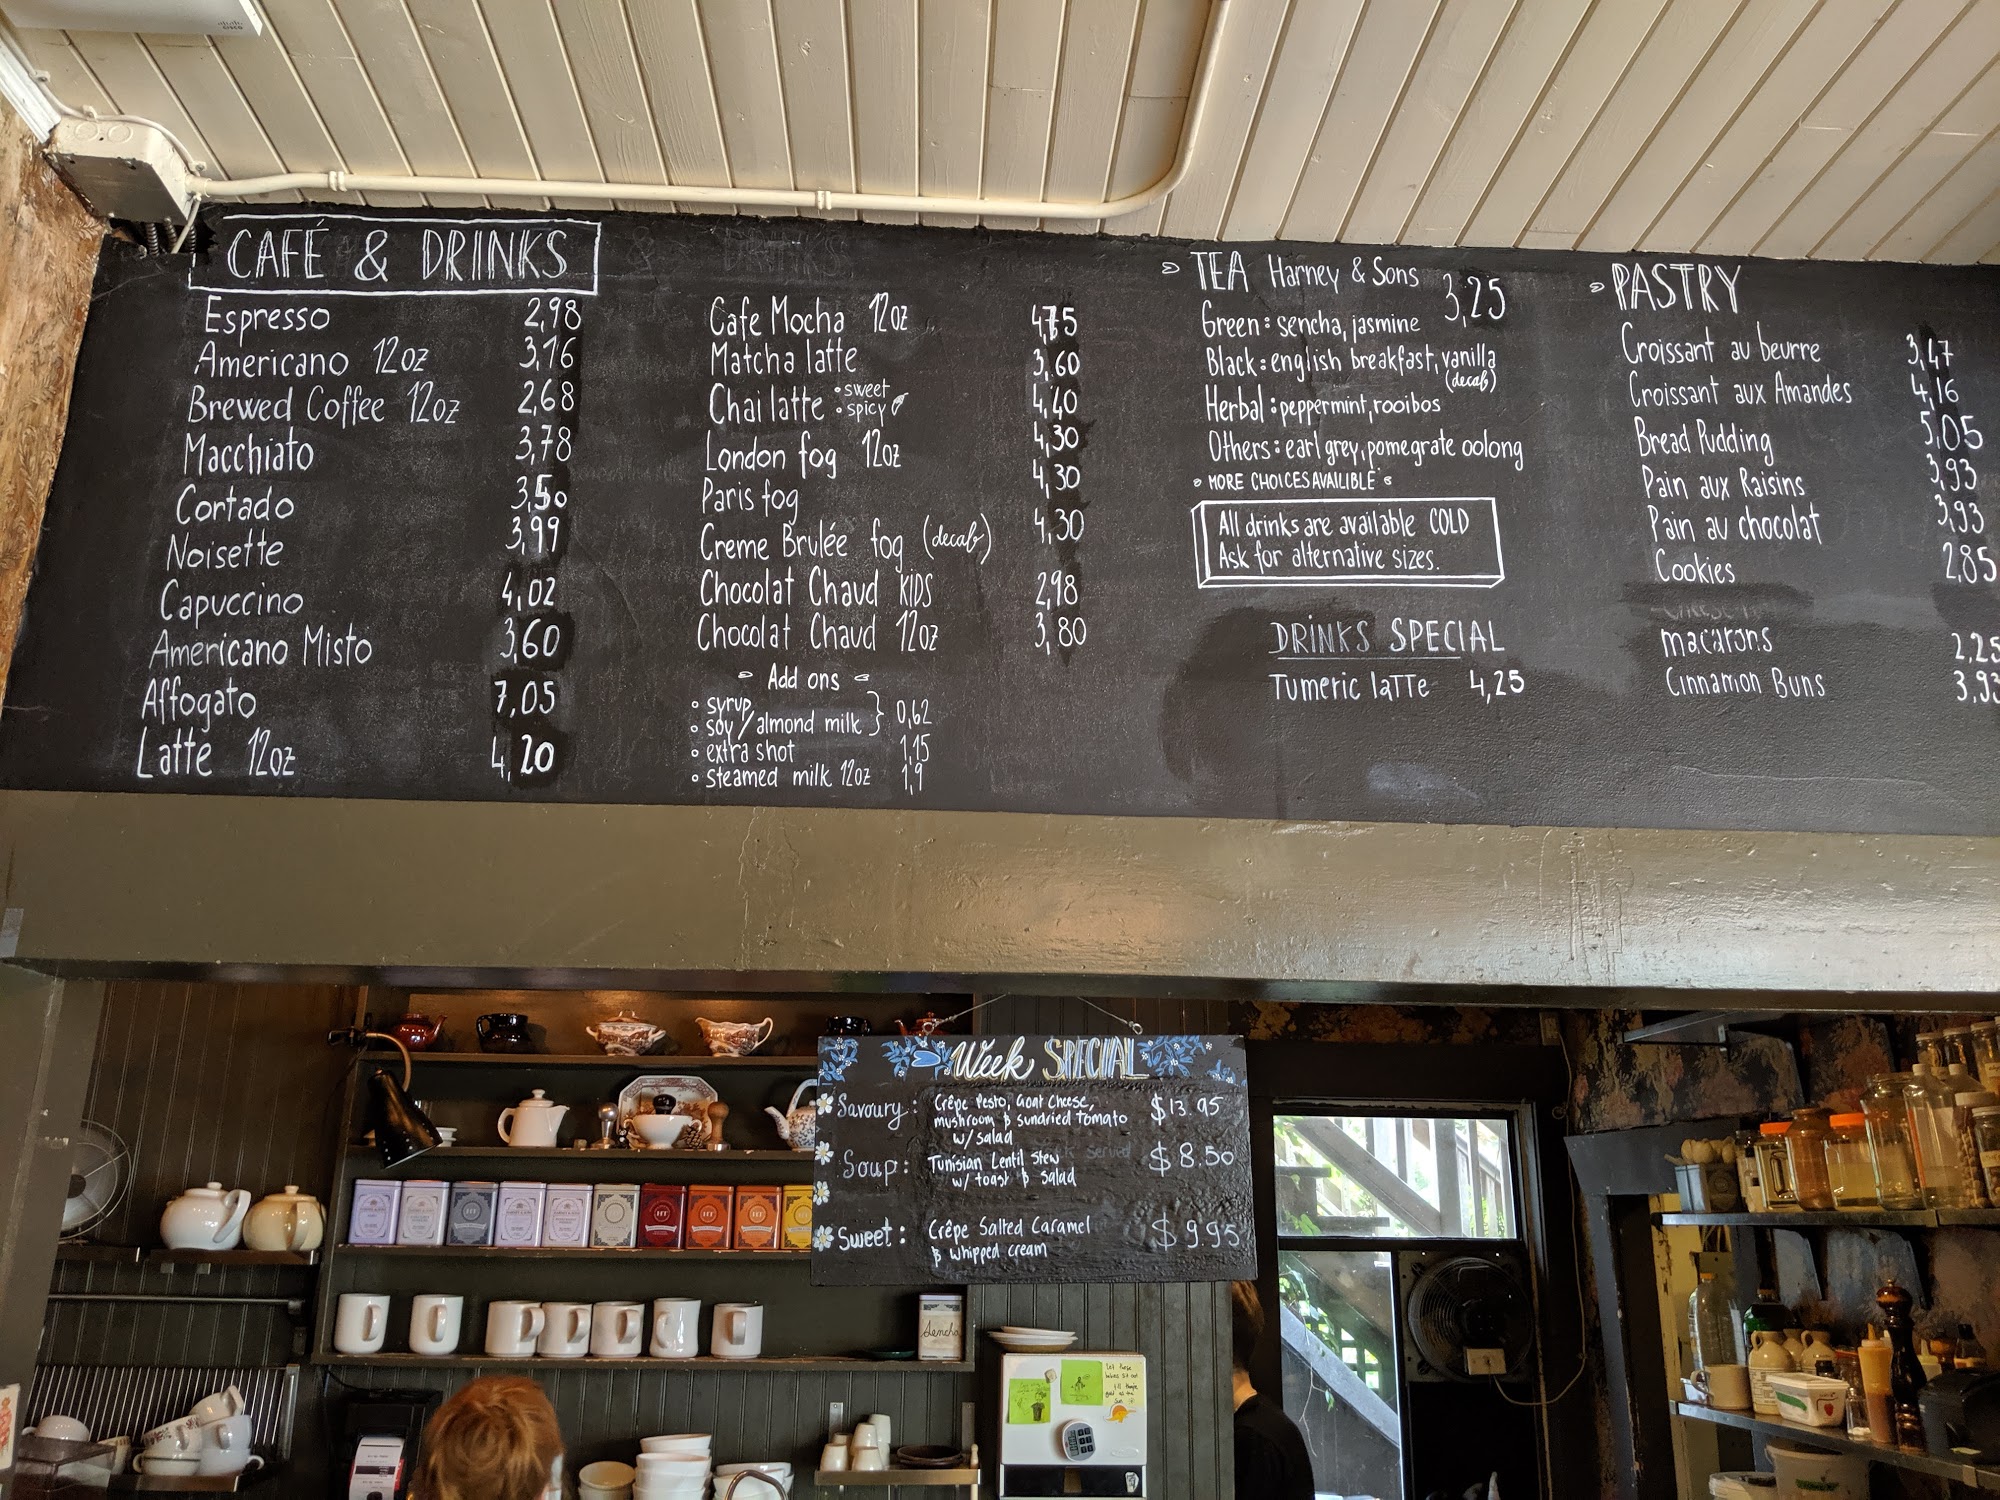 CAFÉ & DRINKS
Espresso 2,98
Americano 12oz 3,16
Brewed Coffee 12oz 2,68
Macchiato 3,78
Cortado 3,50
Noisette 3,99
Capuccino 4,02
Americano Misto 3,60
Affogato 7,05
Latte 12oz 4,20
Cafe Mocha 12oz 4,75
Matcha latte 3,60
Chai latte • sweet • spicy 4,40
London fog 12oz 4,30
Paris fog 4,30
Creme Brulée fog (decaf) 4,30
Chocolat Chaud KIDS 2,98
Chocolat Chaud 12oz 3,80
Add ons
• syrup
• soy / almond milk } 0,62
• extra shot 1,15
• steamed milk 12oz 1,9
TEA Harney & Sons 3,25
Green: sencha, jasmine
Black: english breakfast, vanilla
(decaf)
Herbal: peppermint, rooibos
Others: earl grey, pomegrate oolong
• MORE CHOICES AVAILIBLE •
All drinks are available COLD
Ask for alternative sizes.
DRINKS SPECIAL
Tumeric latte 4,25
PASTRY
Croissant au beurre 3,47
Croissant aux Amandes 4,16
Bread Pudding 5,05
Pain aux Raisins 3,93
Pain au chocolat 3,93
Cookies 2,85
macarons 2,25
Cinnamon Buns 3,93
Week SPECIAL
Savoury: Crêpe Pesto, Goat Cheese, $13.95
mushroom & sundried tomato
w/ salad
Soup: Tunisian Lentil Stew $8.50
w/ toast & salad
Sweet: Crêpe Salted Caramel $9.95
& whipped cream
Sencha
HT
HT
HT
cisco